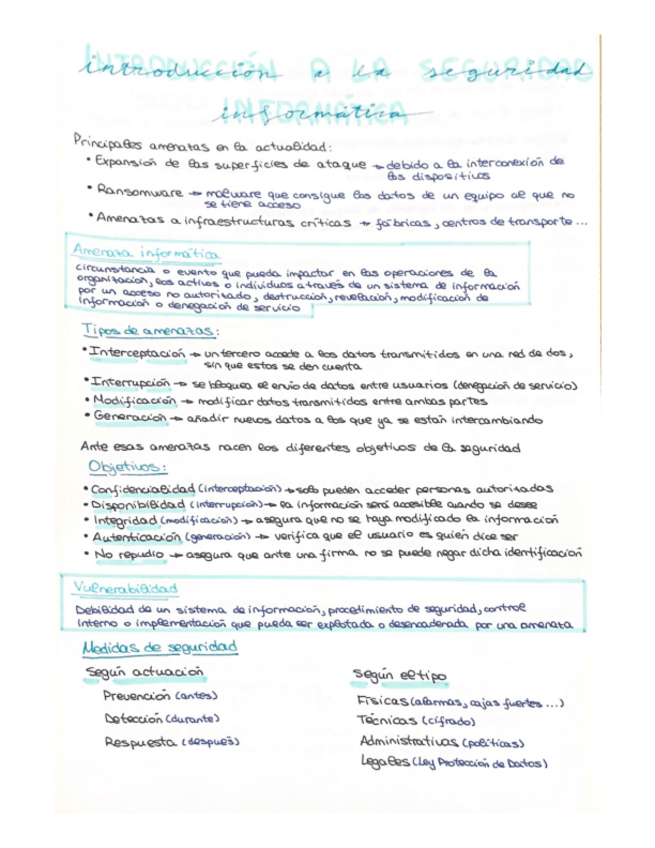 INTRODUCCIÓN A LA SEGURIDAD
introducción a la seguridad
INFORMÁTICA
informática
Principales amenazas en la actualidad:
• Expansión de las superficies de ataque → debido a la interconexión de
los dispositivos
• Ransomware → malware que consigue los datos de un equipo al que no
se tiene acceso
• Amenazas a infraestructuras críticas → fábricas, centros de transporte...
Amenaza informática
circunstancia o evento que pueda impactar en las operaciones de la
organización, los activos o individuos a través de un sistema de información
por un acceso no autorizado, destrucción, revelación, modificación de
información o denegación de servicio
Tipos de amenazas:
• Interceptación → un tercero accede a los datos transmitidos en una red de dos,
sin que estos se den cuenta
• Interrupción → se bloquea el envío de datos entre usuarios (denegación de servicio)
• Modificación → modificar datos transmitidos entre ambas partes
• Generación → añadir nuevos datos a los que ya se están intercambiando
Ante esas amenazas nacen los diferentes objetivos de la seguridad
Objetivos:
• Confidencialidad (interceptación) → solo pueden acceder personas autorizadas
• Disponibilidad (interrupción) → la información será accesible cuando se desee
• Integridad (modificación) → asegura que no se haya modificado la información
• Autenticación (generación) → verifica que el usuario es quién dice ser
• No repudio → asegura que ante una firma no se puede negar dicha identificación
Vulnerabilidad
Debilidad de un sistema de información, procedimiento de seguridad, control
interno o implementación que pueda ser explotada o desencadenada por una amenaza
Medidas de seguridad
según actuación
Prevención (antes)
Detección (durante)
Respuesta (después)
según el tipo
Físicas (alarmas, cajas fuertes...)
Técnicas (cifrado)
Administrativas (políticas)
Legales (Ley Protección de Datos)